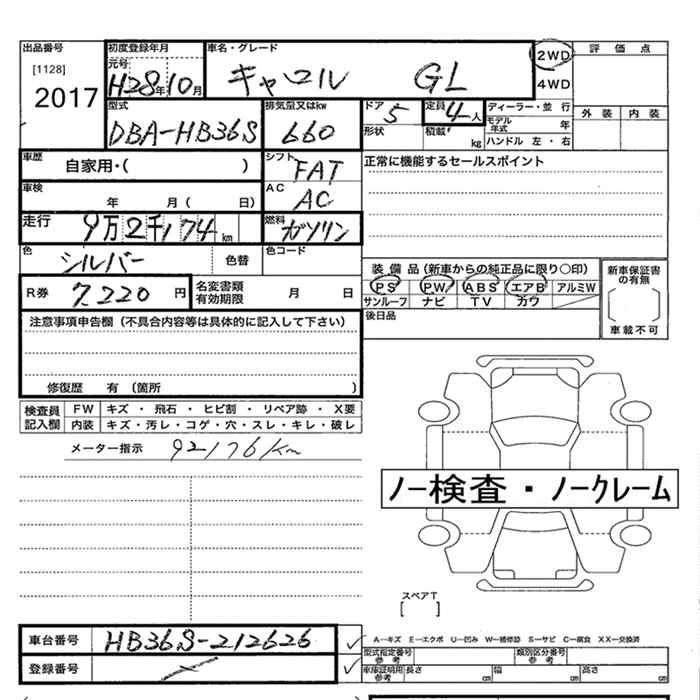 出品番号 初度登録年月 車名・グレード 評価点
[1128] 元号 2WD
2017 H28年10月 キャロル GL 4WD
外装 内装
型式 排気量又はkw ドア 定員 ディーラー・並行
DBA-HB36S 660 5 4人 モデル年式 年
形状 積載 kg ハンドル 左・右
車歴 自家用・( ) シフト FAT 正常に機能するセールスポイント
車検 年 月( 日) AC AC
走行 9万2千174km 燃料 ガソリン
色 シルバー 色替 色コード
装備品(新車からの純正品に限り○印) 新車保証書の有無
R券 7,220円 名変書類有効期限 月 日 PS PW ABS エアB アルミW
サンルーフ ナビ TV カワ
注意事項申告欄(不具合内容等は具体的に記入して下さい) 後日品 車載不可
修復歴 有(箇所 )
検査員記入欄 FW キズ・飛石・ヒビ割・リペア跡・X要
内装 キズ・汚レ・コゲ・穴・スレ・キレ・破レ
メーター指示 92176km
ノー検査・ノークレーム
スペアT
[ ]
車台番号 HB36S-212626 ✓ A―キズ E―エクボ U―凹み W―補修跡 S―サビ C―腐食 XX―交換済
型式指定番号 参考 類別区分番号 参考
登録番号 ✓ 車庫証明用 参考 長さ cm 幅 cm 高さ cm